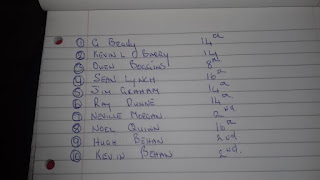 ① G Brady 14a
② Kevin L O Garry 14
③ Owen Boggins 8a
④ Sean Lynch 16a
⑤ Jim Graham 14a
⑥ Ray Dunne 14a
⑦ Neville Morgan 2nd
⑧ Noel Quinn 16a
⑨ Hugh Behan 2nd
⑩ Kevin Behan 2nd.